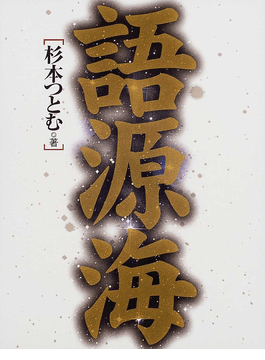 語源海
[杉本つとむ◎著]